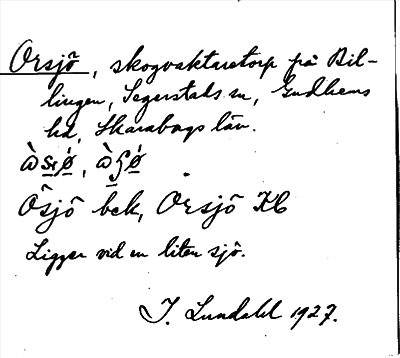 Orsjö, skogvaktaretorp på Bil-
lingen, Segerstads sn, Gudhems
hd, Skaraborgs län.
Ösjö bek, Orsjö KB
Ligger vid en liten sjö.
J. Lundahl 1927.